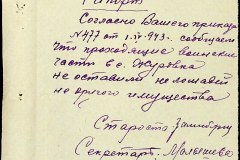 Рапорт
Согласно Вашего приказа
№477 от 1.IV-943. сообщаем
что проходящие воинские
части в с. Журавка
не оставили ни лошадей
ни другого имущества
Староста
Секретарь.